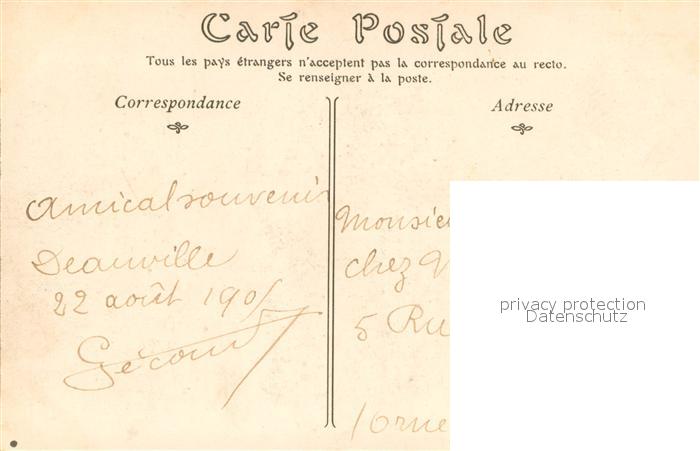 Carte Postale
Tous les pays étrangers n'acceptent pas la correspondance au recto.
Se renseigner à la poste.
Correspondance
Adresse
Amical souvenir
Deauville
22 août 190
Monsie
chez
5 Ru
privacy protection
Datenschutz